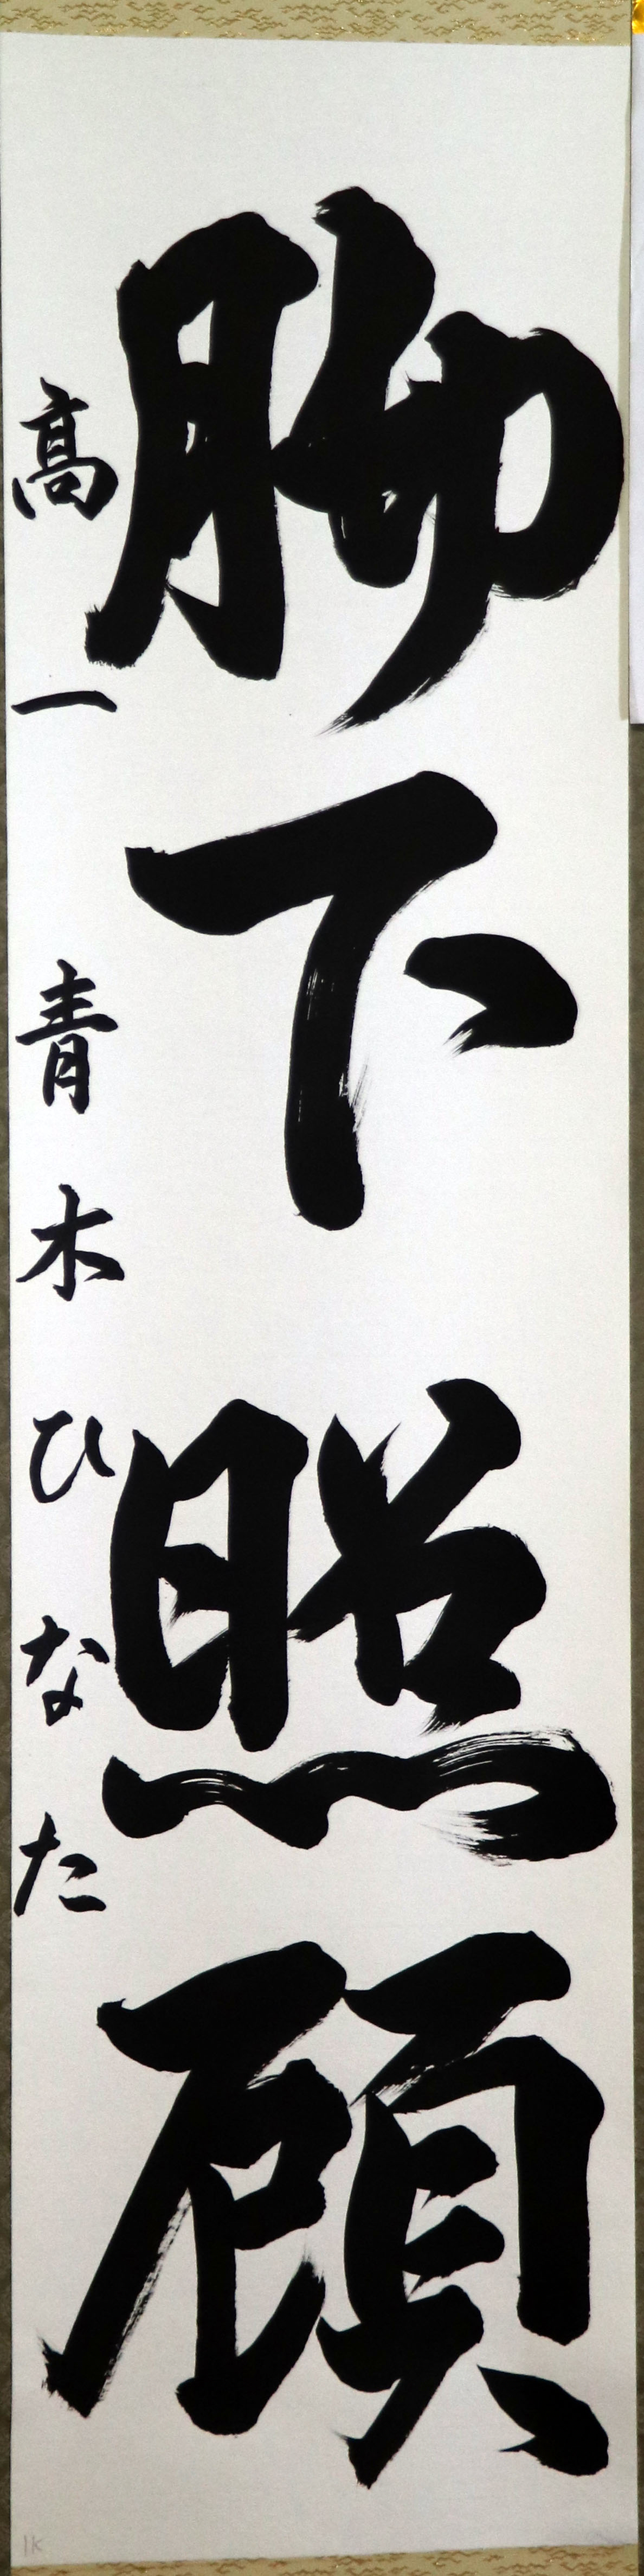 脚下照顧
高一 青木ひなた
1K